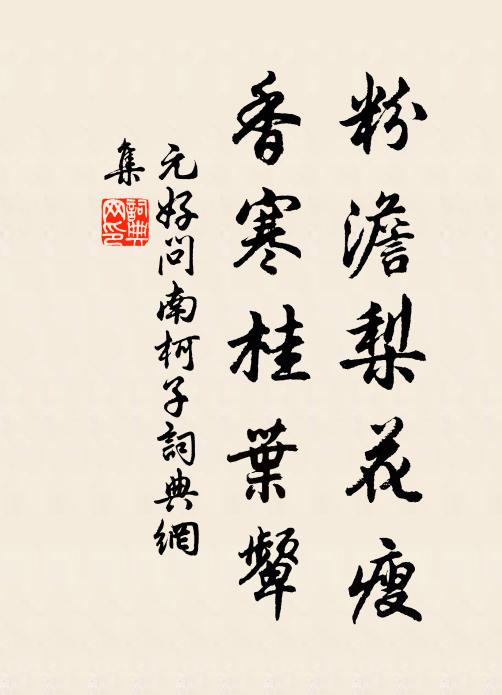 粉澹梨花瘦
香寒桂葉顰
元好问南柯子詞典網
集
詞典網印